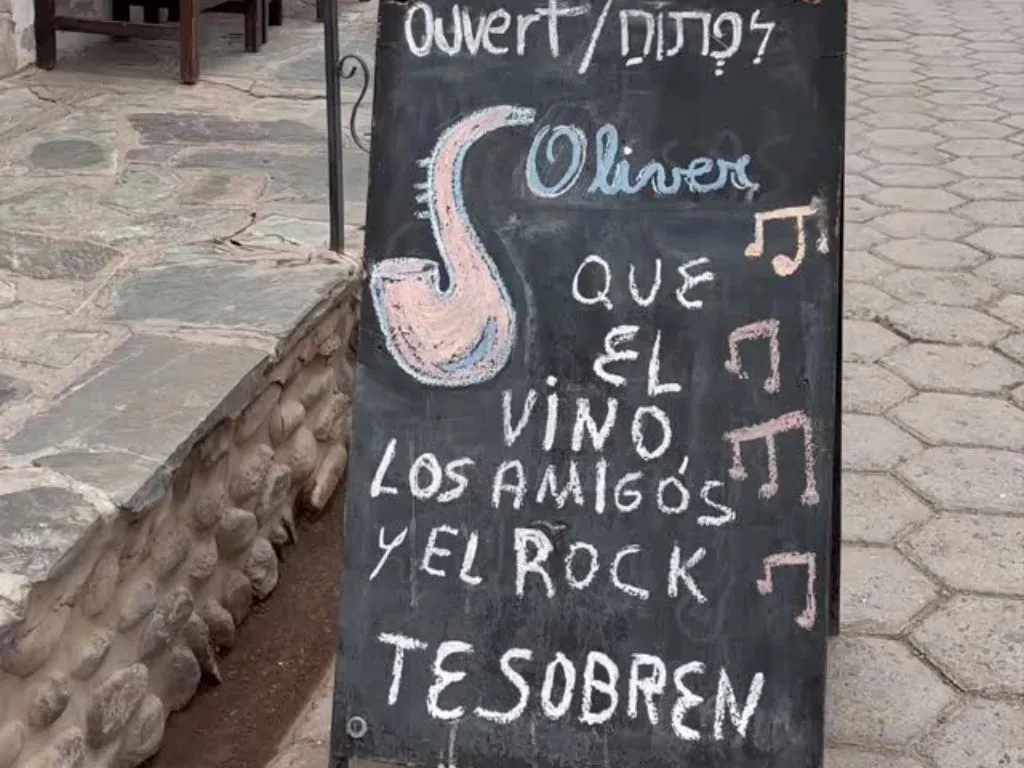 Ouvert / לפָתוחַ
Oliver
QUE
EL
VINO,
LOS AMIGÓS
Y EL ROCK
TE SOBREN